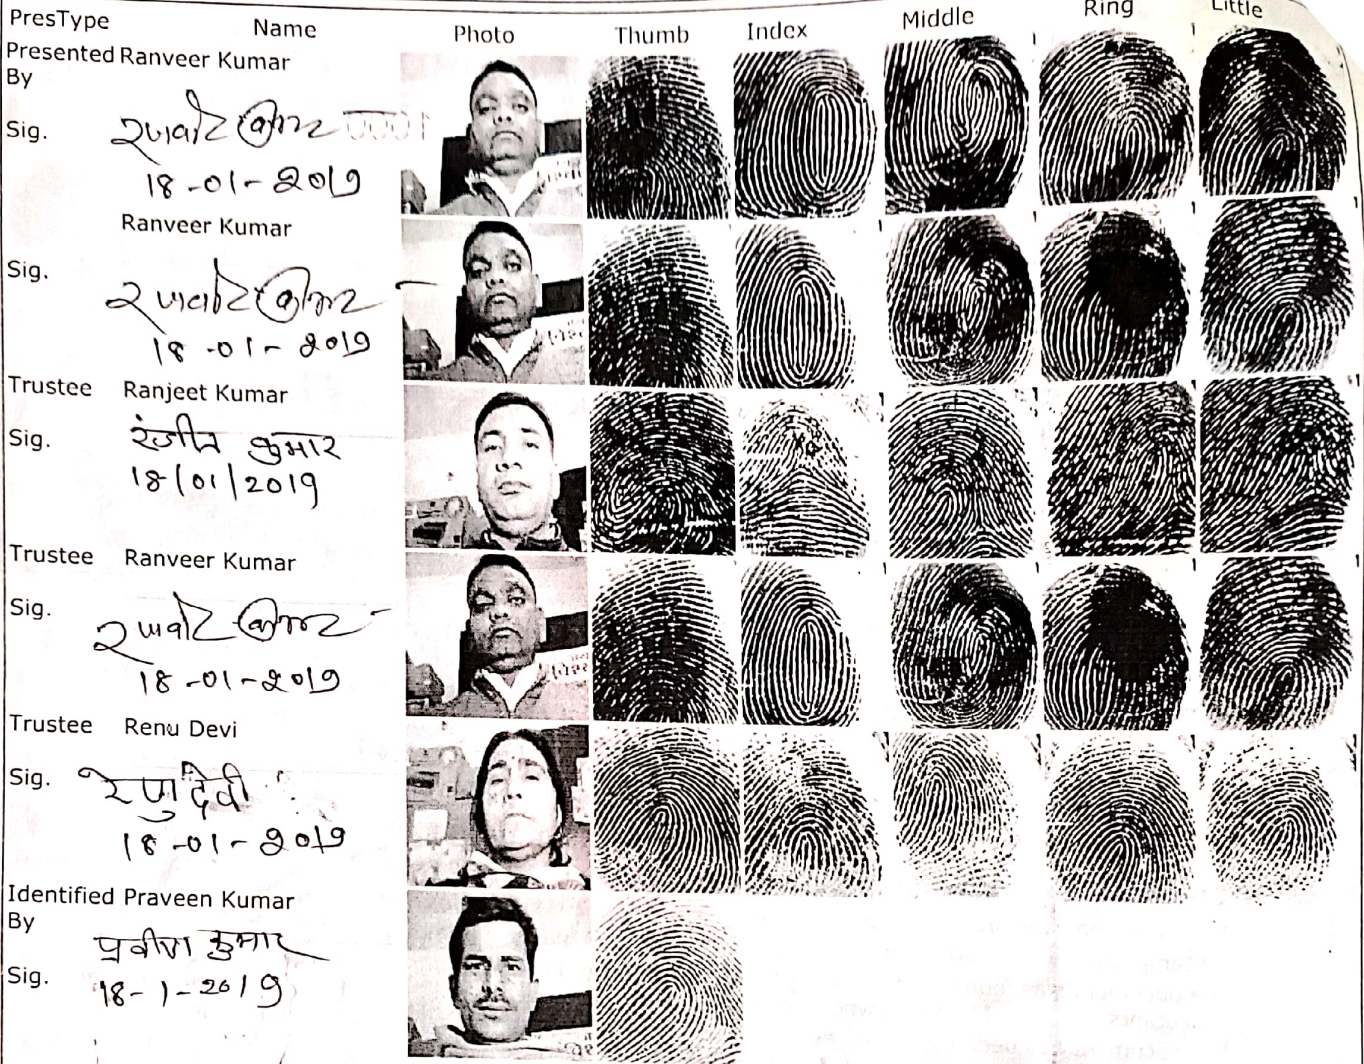 PresType Name Photo Thumb Index Middle Ring Little
Presented Ranveer Kumar
By
Sig. रणवीर कुमार
18-01-2019
Ranveer Kumar
Sig. रणवीर कुमार
18-01-2019
Trustee Ranjeet Kumar
Sig. रंजीत कुमार
18/01/2019
Trustee Ranveer Kumar
Sig. रणवीर कुमार
18-01-2019
Trustee Renu Devi
Sig. रेणु देवी
18-01-2019
Identified Praveen Kumar
By
प्रवीण कुमार
Sig. 18-1-2019